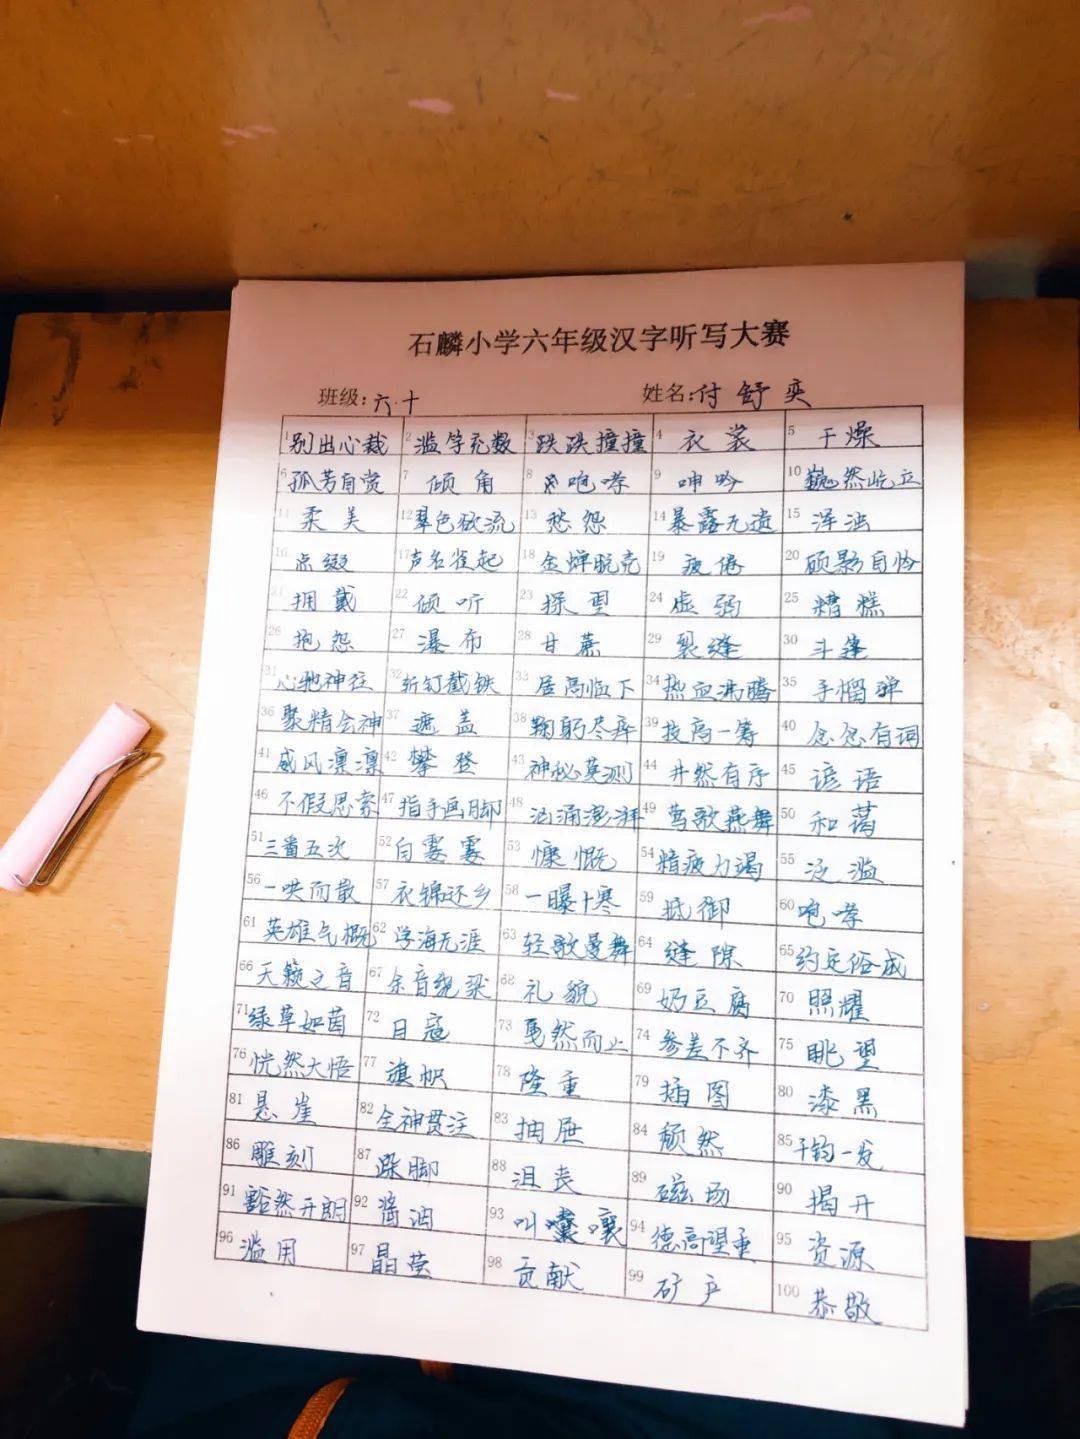 石麟小学六年级汉字听写大赛
班级:六·十 姓名:付舒奕
1 别出心裁 2 滥竽充数 3 跌跌撞撞 4 衣裳 5 干燥
6 孤芳自赏 7 倾角 8 咆哮 9 呻吟 10 巍然屹立
11 柔美 12 翠色欲流 13 愁怨 14 暴露无遗 15 浑浊
16 点缀 17 声名雀起 18 金蝉脱壳 19 疲倦 20 顾影自怜
21 拥戴 22 倾听 23 24 虚弱 25 糟糕
26 抱怨 27 瀑布 28 甘蔗 29 裂缝 30 斗篷
31 心驰神往 32 斩钉截铁 33 居高临下 34 热血沸腾 35 手榴弹
36 聚精会神 37 遮盖 38 鞠躬尽瘁 39 技高一筹 40 念念有词
41 威风凛凛 42 攀登 43 神秘莫测 44 井然有序 45 谚语
46 不假思索 47 指手画脚 48 汹涌澎湃 49 莺歌燕舞 50 和蔼
51 三番五次 52 白雾雾 53 慷慨 54 精疲力竭 55 泛滥
56 一哄而散 57 衣锦还乡 58 一曝十寒 59 抵御 60 咆哮
61 英雄气概 62 学海无涯 63 轻歌曼舞 64 缝隙 65 约定俗成
66 天籁之音 67 余音绕梁 68 礼貌 69 奶豆腐 70 照耀
71 绿草如茵 72 日寇 73 戛然而止 74 参差不齐 75 眺望
76 恍然大悟 77 旗帜 78 隆重 79 插图 80 漆黑
81 悬崖 82 全神贯注 83 抽屉 84 颓然 85 千钧一发
86 雕刻 87 跺脚 88 沮丧 89 磁场 90 揭开
91 豁然开朗 92 酱油 93 叫嚷 94 德高望重 95 资源
96 滥用 97 晶莹 98 贡献 99 矿产 100 恭敬